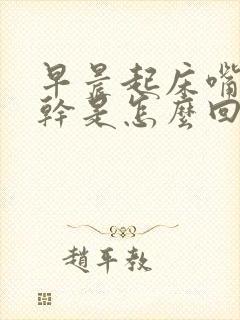 早晨起床嘴
幹是怎麼回
趙平教